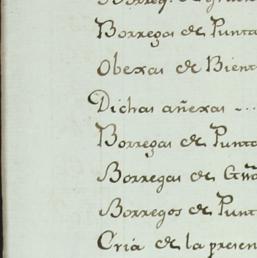 Borregas de Punta
Obexas de Bient
Dichas añexas - . .
Borregas de Punta
Borregas de
Borregos de Punt
Cria de la presen